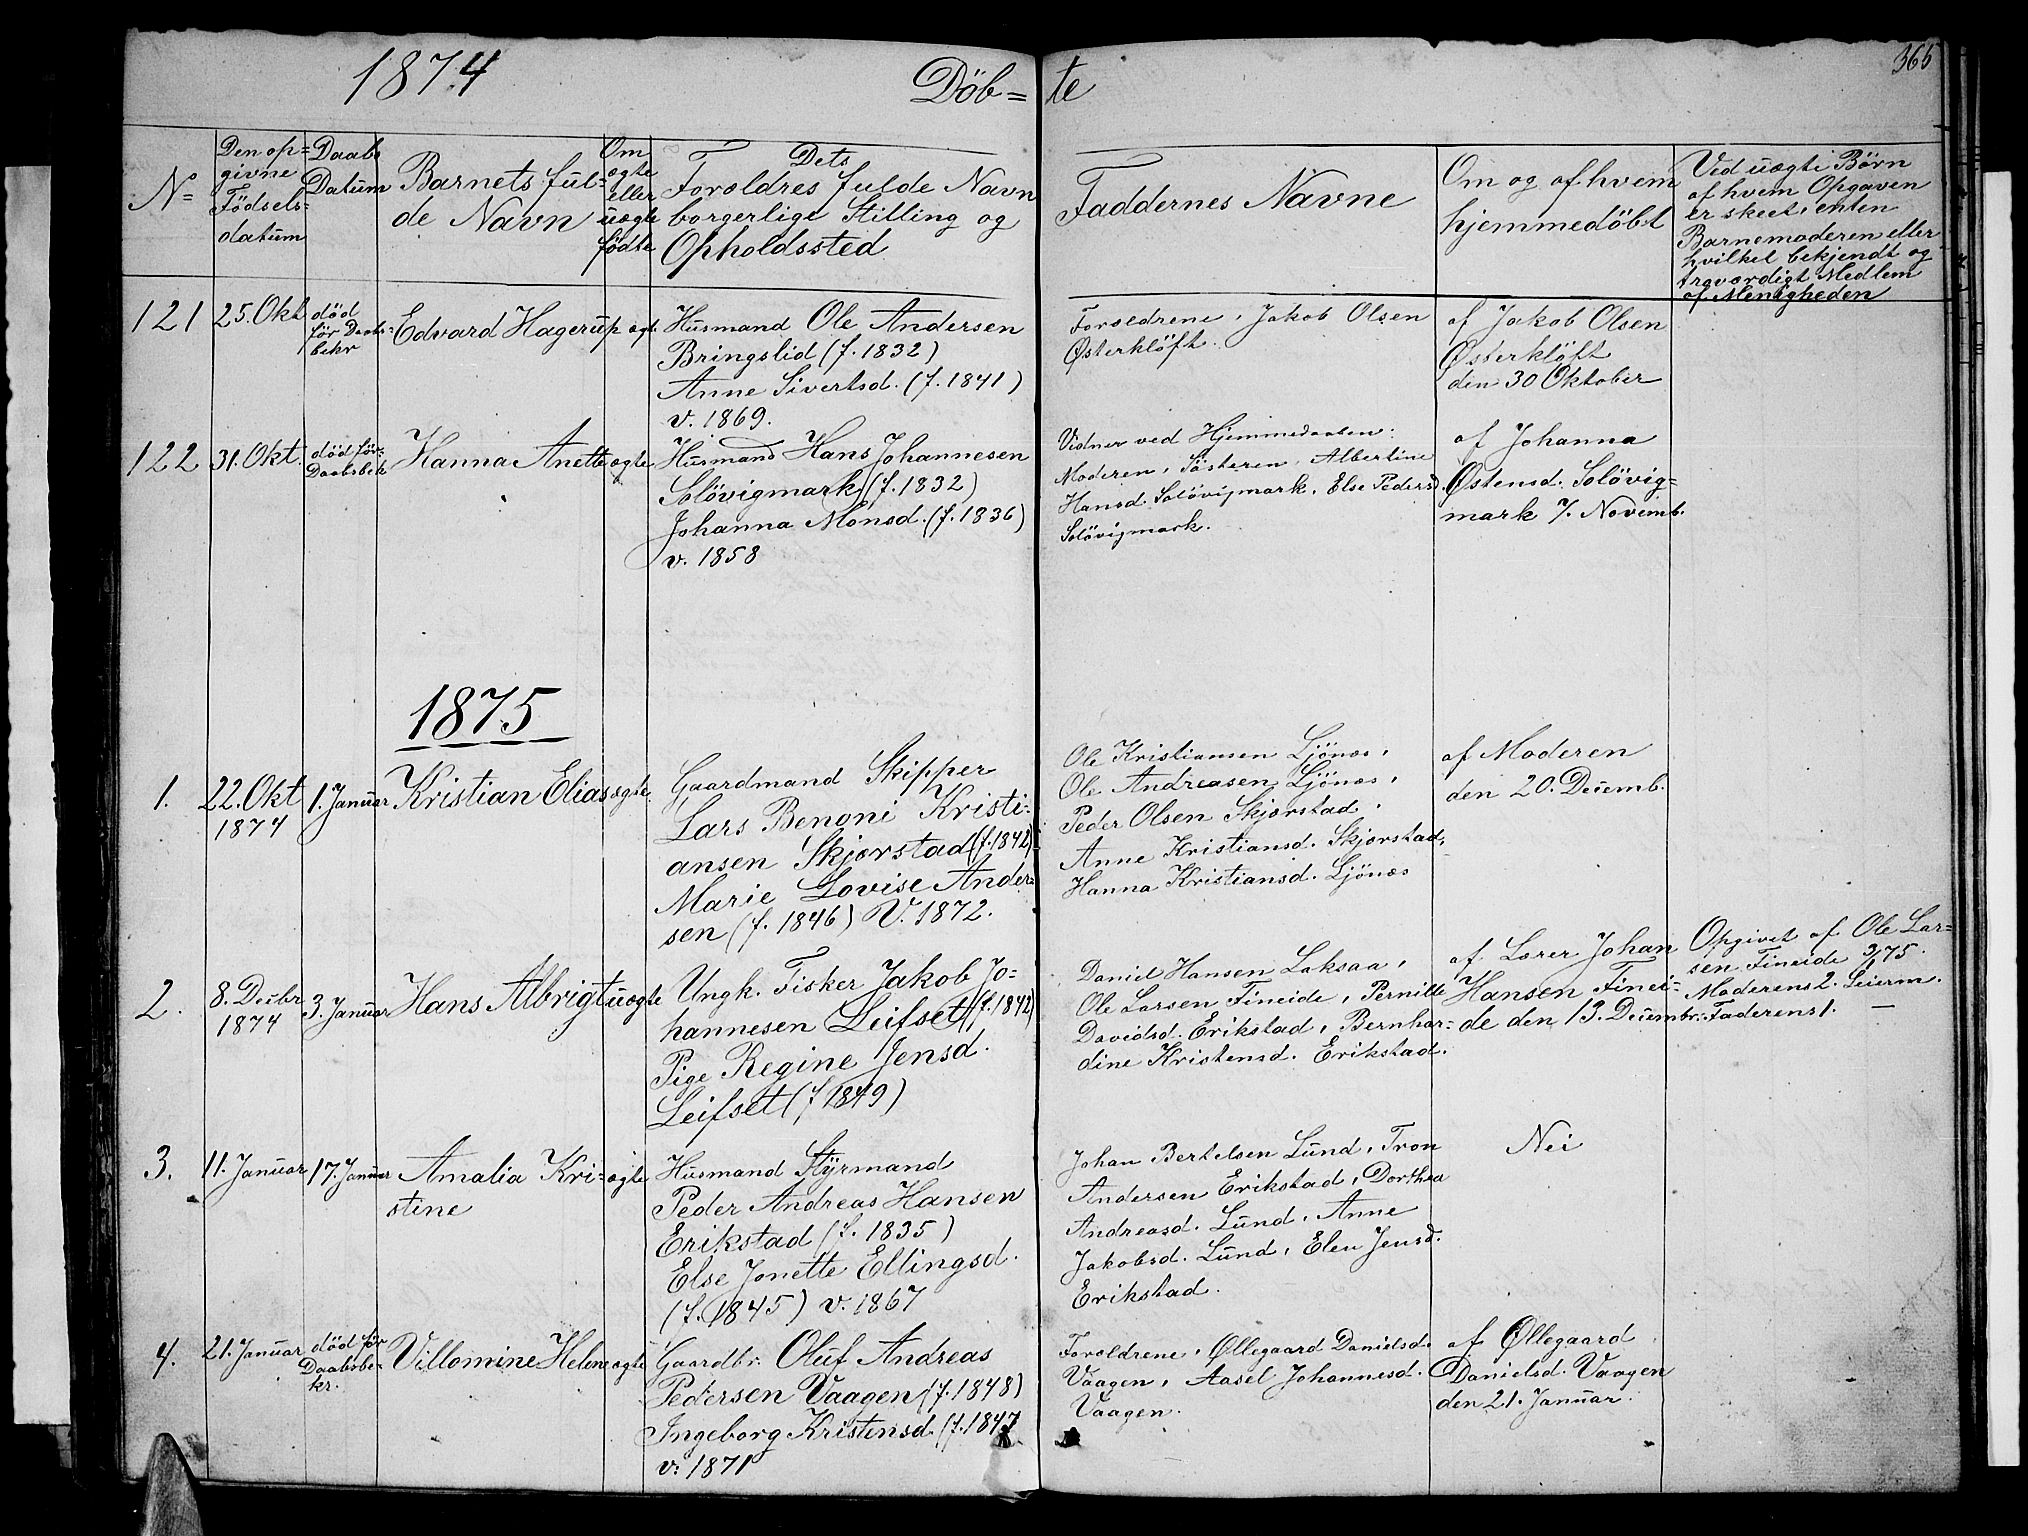 1874
Döb=
te
366
N=
Den op=
givne
Födsels-
datum
Daabs
Datum
Barnets ful=
de Navn
Om
ægte
eller
uægte
födte
Dets
Foræeldres fulde Navn
borgerlige Stilling og
Opholdssted
Faddernes Navne
Om og af hvem
hjemmedöbt
Ved uægti Börn
af hvem Opgaven
er skeet, enten
Barnemoderen eller
hvilket bekjendt og
troværdigt Medlem
af Menigheden
121
25. Okt
död
för Daabs-
bekr
Edvard Hagerup
ægte
Husmand Ole Andersen
Bringslid (f. 1832)
Anne Sivertsd. (f. 1841)
v. 1869.
Forældrene, Jakob Olsen
Østerklöft.
af Jakob Olsen
Østerklöft
den 30 Oktober
122
31. Okt.
död för
Daabsbek
Hanna Anette
ægte
Husmand Hans Johannesen
Solövigmark (f. 1832)
Johanna Monsd. (f. 1836)
v. 1858
Vidner ved Hjemmedaaben:
Moderen, Sösteren, Albertine
Hansd. Solövigmark, Else Pedersd.
Solövigmark.
af Johanna
Østensd. Solövig=
mark 7. Novemb.
1875
1.
22. Okt
1874
1. Januar
Kristian Elias
ægte.
Gaardmand Skipper
Lars Benoni Kristi=
ansen Skjærstad (f. 1842)
Marie Lovise Ander=
sen (f. 1846) V. 1872.
Ole Kristiansen Ljönæs,
Ole Andreasen Ljönæs,
Peder Olsen Skjærstad,
Anne Kristiansd. Skjærstad,
Hanna Kristiansd. Ljönæs
af Moderen
den 20. Decemb.
2.
8. Decbr
1874
3. Januar
Hans Albrigt
uægte
Ungk. Fisker Jakob Jo=
hannesen Leifset (f. 1842)
Pige Regine Jensd.
Leifset (f 1849)
Daniel Hansen Laksaa,
Ole Larsen Fineide, Pernille
Davidsd. Erikstad, Bernhar=
dine Kristensd. Erikstad.
af Lærer Johan
Hansen Finei=
de den 13. Decembr.
Opgivet af Ole Lar=
sen Fineide 3/1 75.
Moderens 2. Leierm.
Faderens 1. —
3.
11. Januar
17. Januar
Amalia Kri=
stine
ægte
Husmand Styrmand
Peder Andreas Hansen
Erikstad (f. 1835)
Else Jonette Ellingsd.
(f. 1845) v. 1867
Johan Bertelsen Lund, Tron
Andersen Erikstad, Dorthea
Andreasd. Lund, Anne
Jakobsd. Lund, Elen Jensd.
Erikstad.
Nei
4.
21. Januar
död för
Daabsbe-
kr.
Villomine Helene
ægte
Gaardbr. Oluf Andreas
Pedersen Vaagen (f. 1848)
Ingeborg Kristensd. (f. 1847
v. 1871
Forældrene, Øllegaard Danielsd.
Vaagen, Aasel Johannesd.
Vaagen.
af Øllegaard
Danielsd. Vaagen
den 21. Januar.